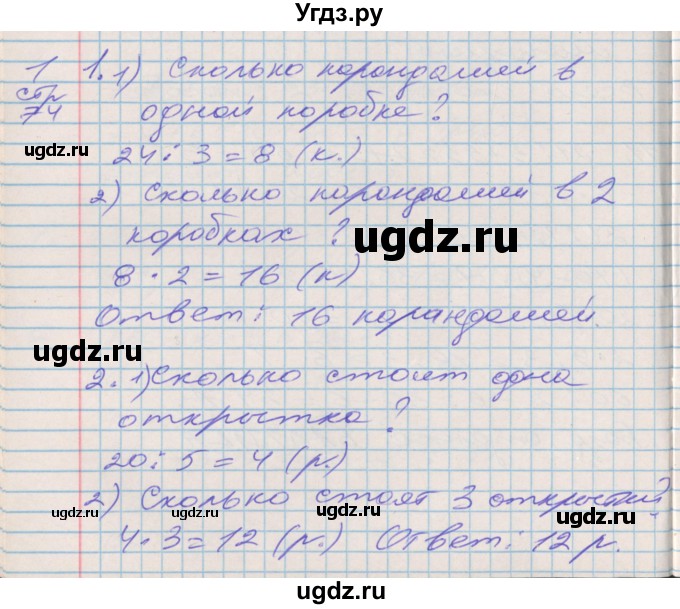 Угдз.ру
1 1. 1) Сколько карандашей в
стр 74 одной коробке?
ugdz.ru
24 : 3 = 8 (к.)
2) Сколько карандашей в 2
коробках?
ugdz.ru
8 · 2 = 16 (к)
Ответ: 16 карандашей.
ugdz.ru
2. 1) Сколько стоит одна
открытка?
20 : 5 = 4 (р.)
2) Сколько стоят 3 открытки
ugdz.ru ugdz.ru ugdz.ru
4 · 3 = 12 (р.) Ответ: 12 р.
ugdz.ru